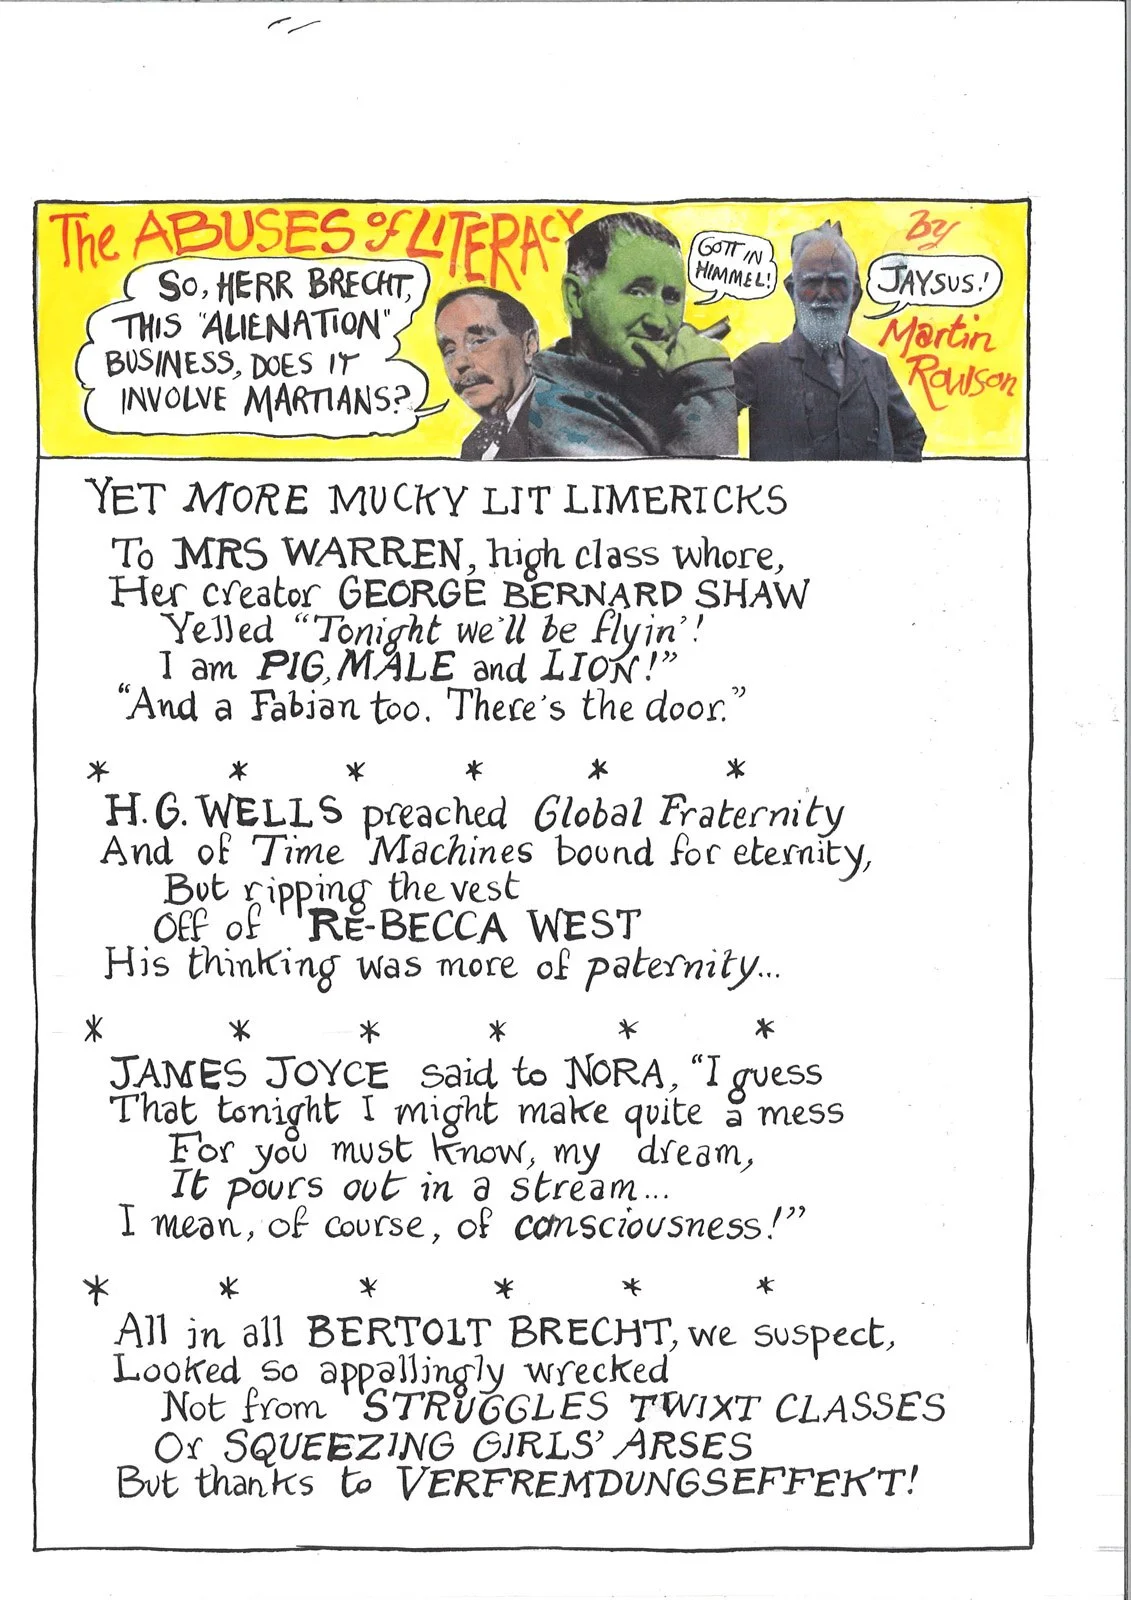 The ABUSES of LITERACY
by
Martin
Rowson
SO, HERR BRECHT,
THIS "ALIENATION"
BUSINESS, DOES IT
INVOLVE MARTIANS?
GOTT IN
HIMMEL!
JAYSUS!
YET MORE MUCKY LIT LIMERICKS
To MRS WARREN, high class whore,
Her creator GEORGE BERNARD SHAW
Yelled "Tonight we'll be flyin'!
I am PIG, MALE and LION!"
"And a Fabian too. There's the door."
* * * * * *
H.G. WELLS preached Global Fraternity
And of Time Machines bound for eternity,
But ripping the vest
Off of RE-BECCA WEST
His thinking was more of paternity...
* * * * * *
JAMES JOYCE said to NORA, "I guess
That tonight I might make quite a mess
For you must know, my dream,
It pours out in a stream...
I mean, of course, of consciousness!"
* * * * * *
All in all BERTOLT BRECHT, we suspect,
Looked so appallingly wrecked
Not from STRUGGLES TWIXT CLASSES
Or SQUEEZING GIRLS' ARSES
But thanks to VERFREMDUNGSEFFEKT!